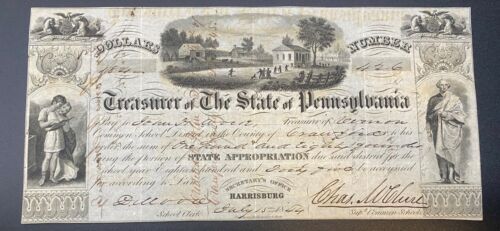 DOLLARS
NUMBER
426
Treasurer of The State of Pennsylvania
Pay to John Treasurer of Vernon
Common School District in the County of Crawford or his
order the sum of One hundred and eighty
being the portion of STATE APPROPRIATION due said district for the
School year Eighteen hundred and Forty five to be accounted
for according to Law.
SECRETARY'S OFFICE
HARRISBURG
July 15 1844
Chas. McClure
School Clerk
Sup't Common Schools